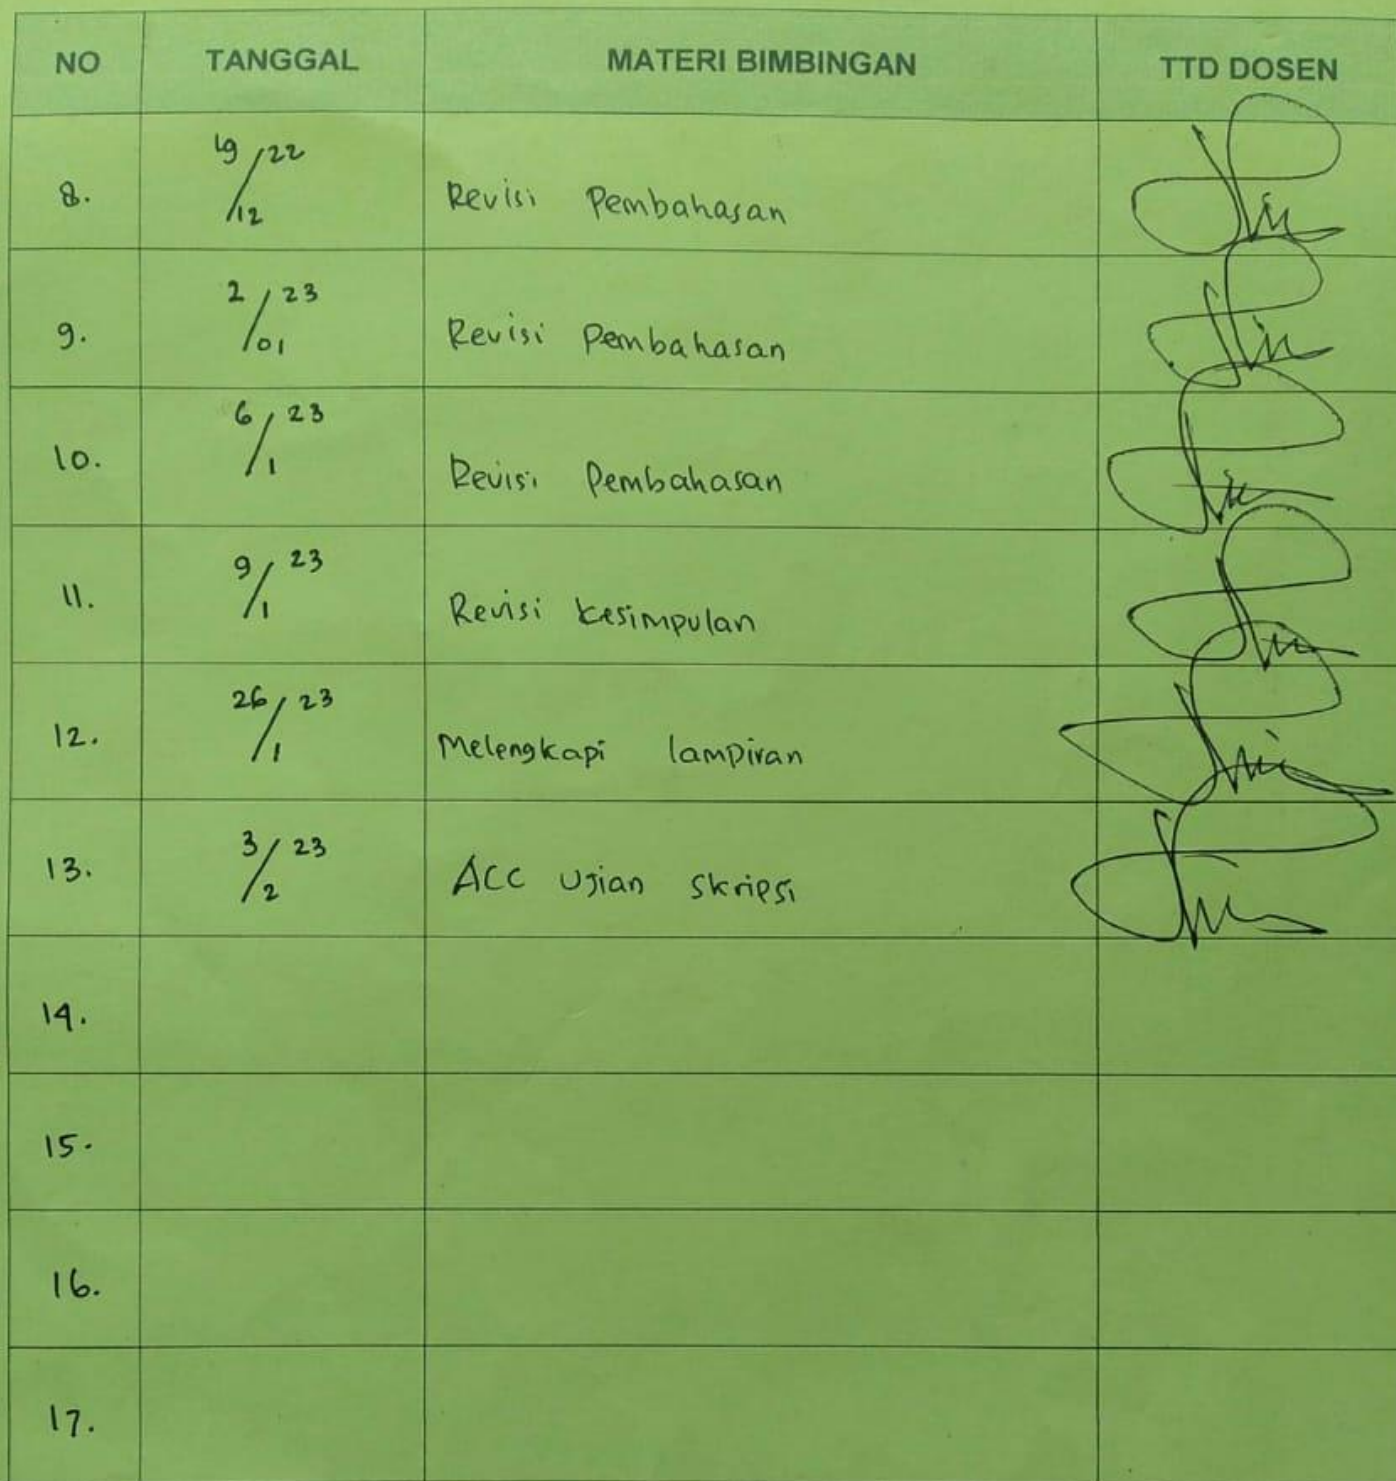 NO TANGGAL MATERI BIMBINGAN TTD DOSEN
8. 19/12/22 Revisi Pembahasan
9. 2/01/23 Revisi Pembahasan
10. 6/1/23 Revisi Pembahasan
11. 9/1/23 Revisi kesimpulan
12. 26/1/23 Melengkapi lampiran
13. 3/2/23 ACC Ujian skripsi
14.
15.
16.
17.